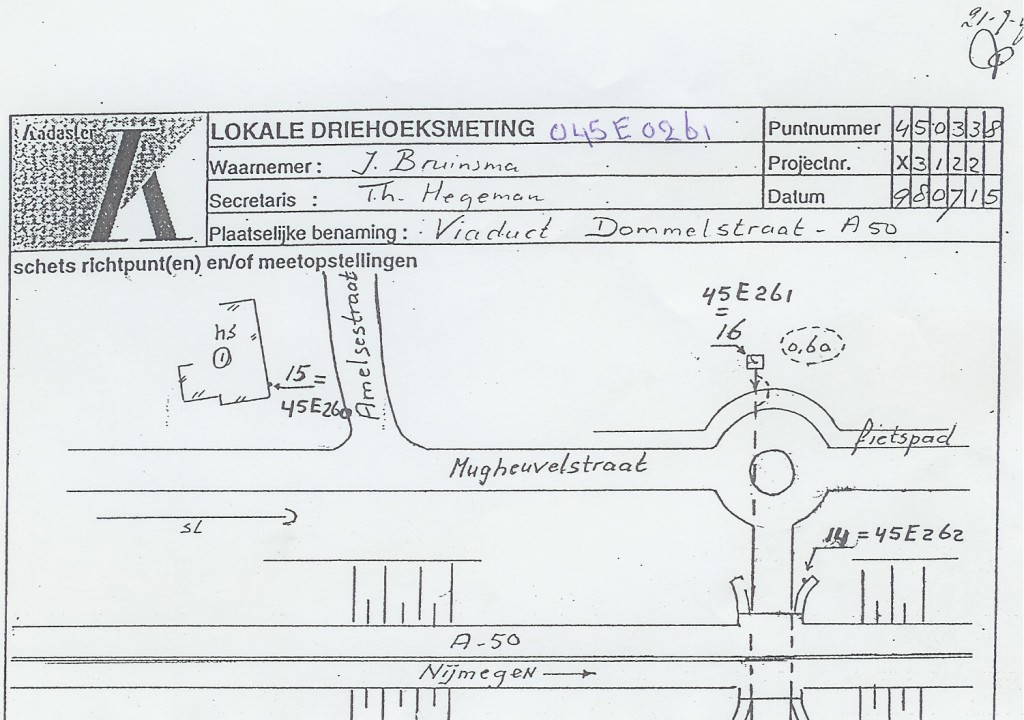 Kadaster
LOKALE DRIEHOEKSMETING 045E0261
Puntnummer 450338
Waarnemer : J. Bruinsma
Projectnr. X3122
Secretaris : Th. Hegeman
Datum 980715
Plaatselijke benaming : Viaduct Dommelstraat - A50
schets richtpunt(en) en/of meetopstellingen
45E261
=
16
0,60
hs
1
15 =
45E260
Amelsestraat
fietspad
Mugheuvelstraat
SL
14 = 45E262
A-50
Nijmegen